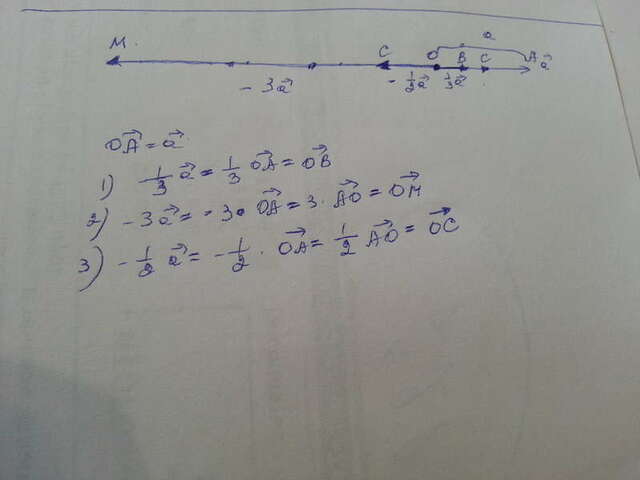 a
M. C O B C A a⃗
- 3a⃗ - 1/2 a⃗ 1/3 a⃗
OA⃗ = a⃗
1) 1/3 a⃗ = 1/3 OA⃗ = OB⃗
2) - 3a⃗ = - 3 · OA⃗ = 3 · AO⃗ = OM⃗
3) - 1/2 a⃗ = - 1/2 · OA⃗ = 1/2 AO⃗ = OC⃗